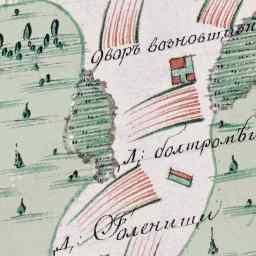 Дворъ вазновшин
Д: болтромѣ
Д: Голенищи